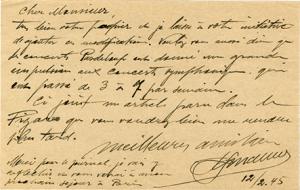 Cher Monsieur
bien votre papier et je laisse à votre initiative
d'ajouter ou modification. Voulez vous aussi dire que
les concerts Pasdeloup ont donné une grande
impulsion aux concerts symphoniques qui
ont passé de 3 à 7 par semaine.
Ci joint un article paru dans le
Figaro que vous voudrez bien me rendre
plus tard.
meilleures amitiés
Merci pour le journal, je vais y
prochain séjour à Paris
12/2.45